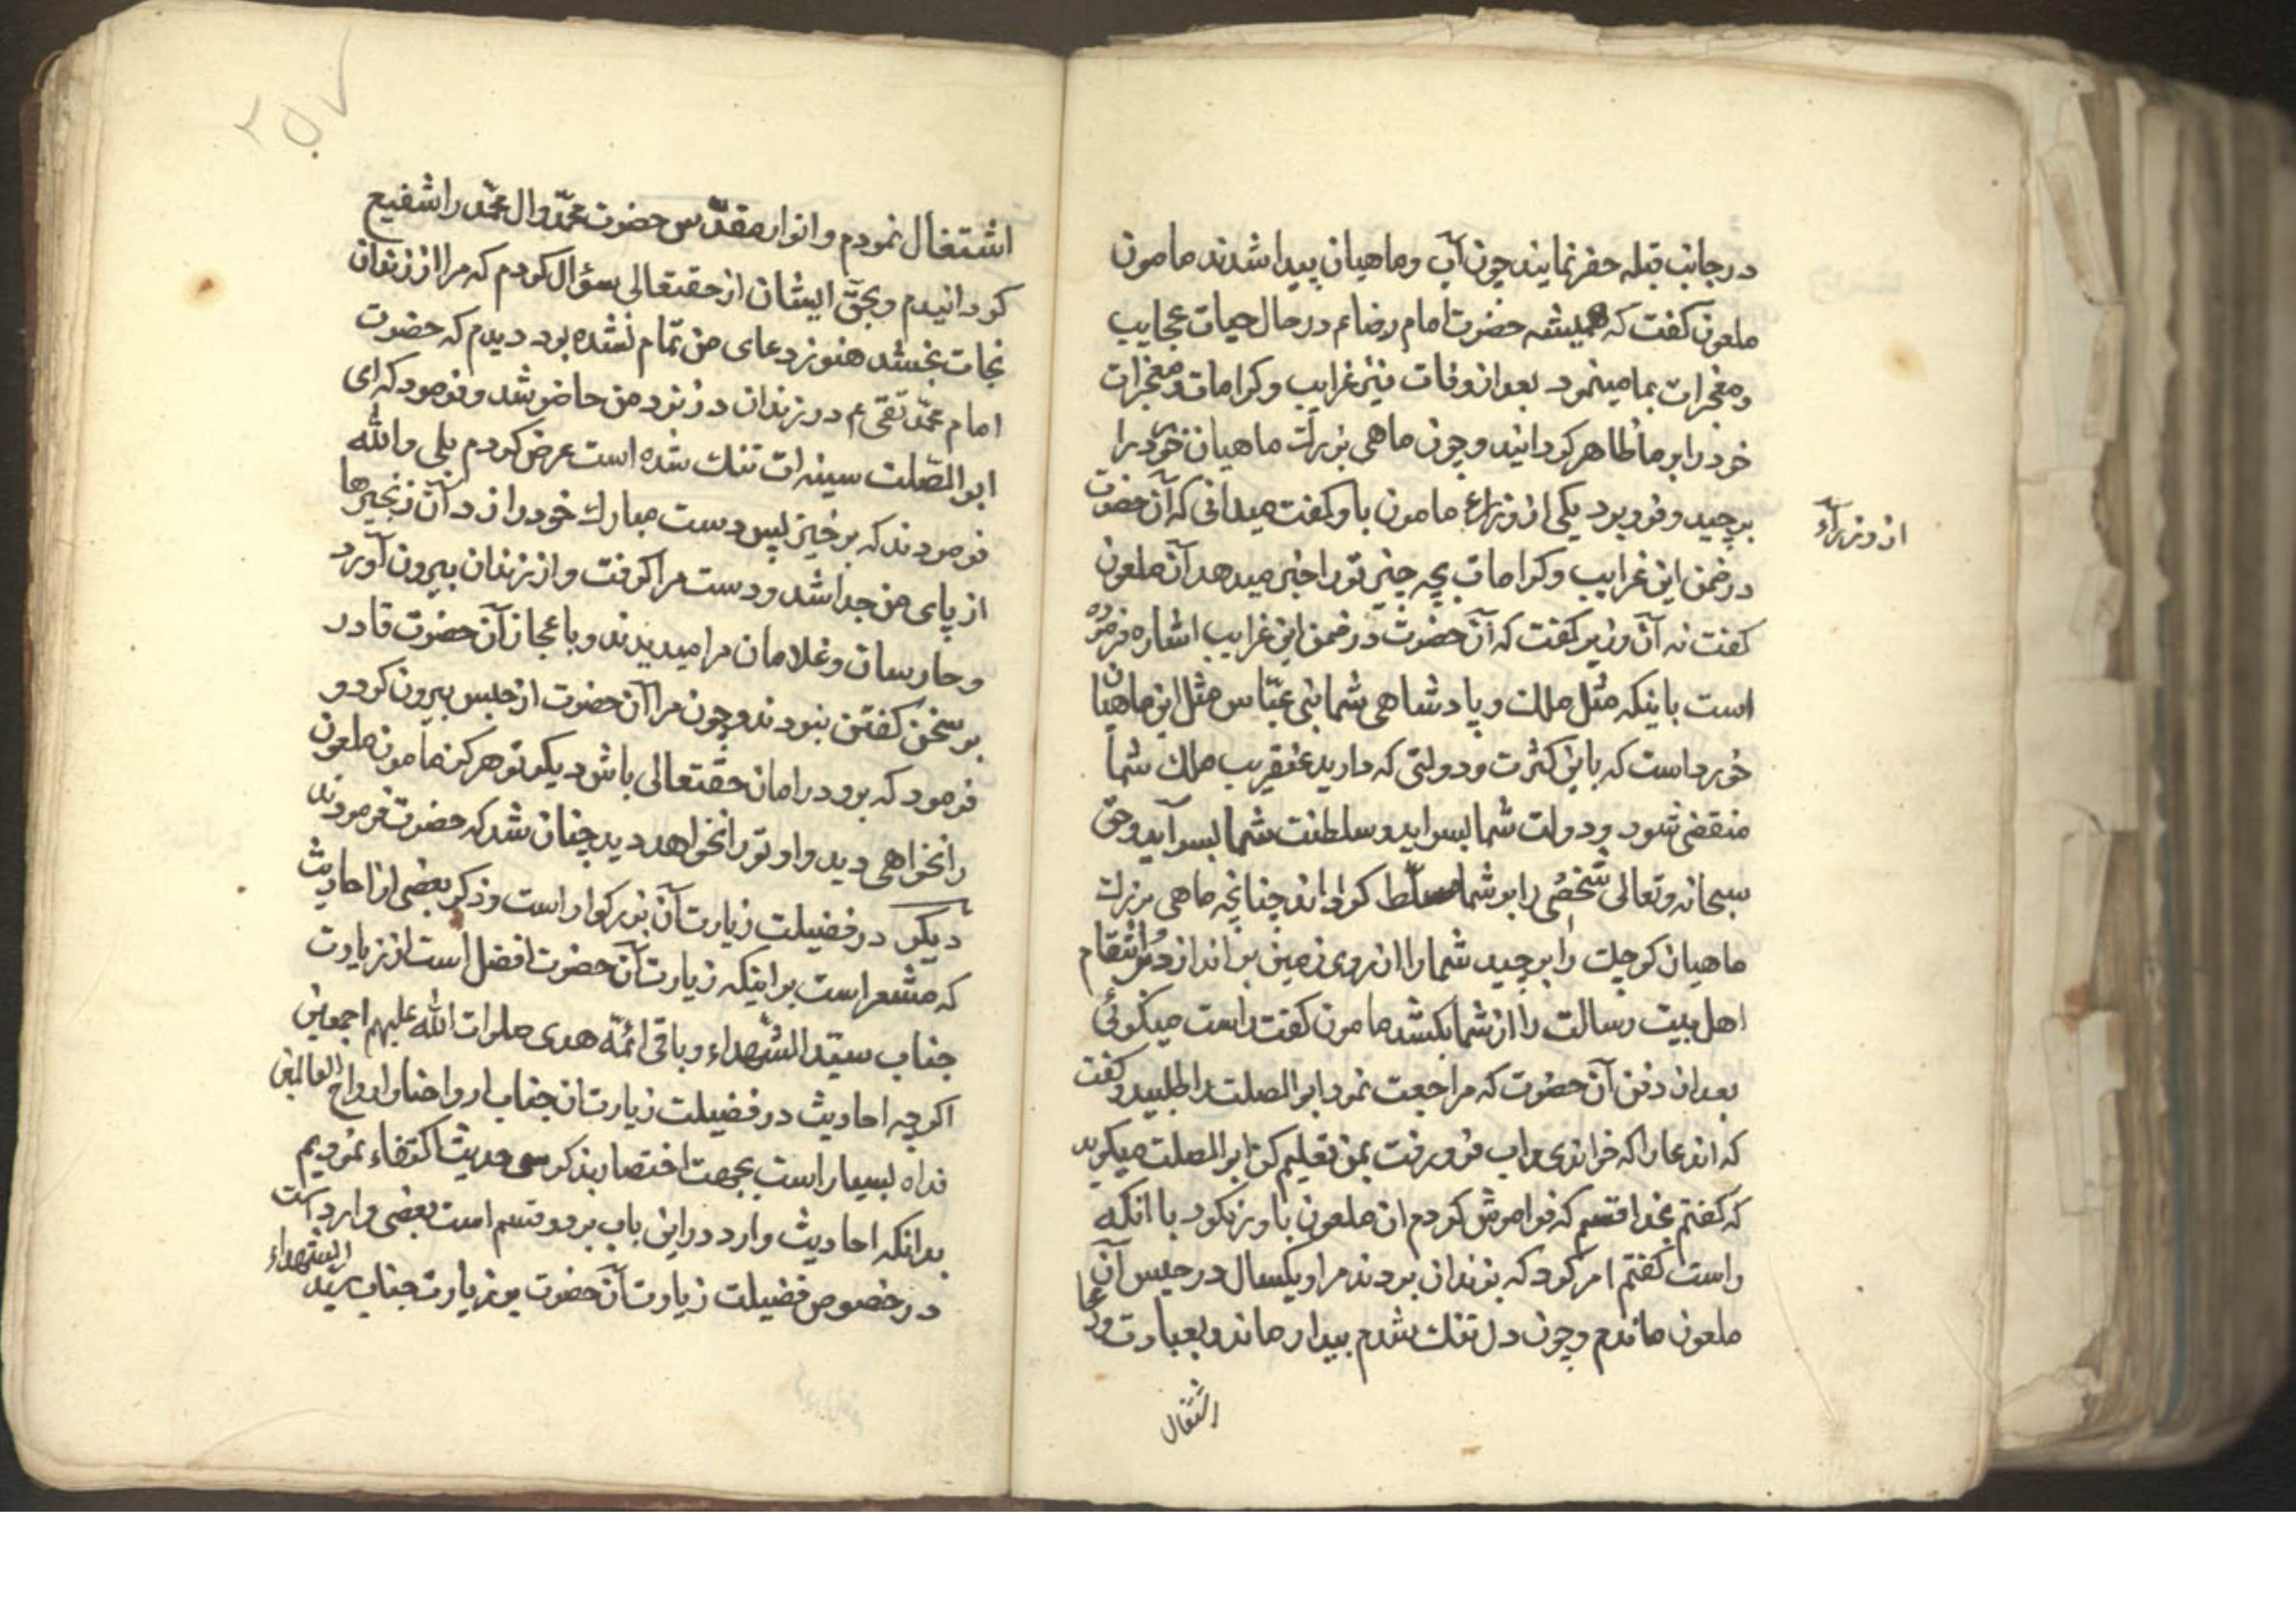 در جانب قبله حفر نمایند چون آب و ماهیان پیدا شدند مامون
ملعون کفت که همیشه حضرت امام رضا ع م در حال حیات عجایب
و معجزات بما مینمود بعد از وفات نیز غرایب و کرامات و معجزات
خود را بر ما ظاهر کردانید و چون ماهی بزرك ماهیان خورد را
برچید و فرو برد یکی از وزراء مامون باو کفت میدانی که آن حضرت
از وزراء
در ضمن این غرایب و کرامات بچه چیز تو را خبر میدهد آن ملعون
کفت نه آن وزیر کفت که آن حضرت در ضمن این غرایب اشاره فرموده
است باینکه مثل ملك و پادشاهی شما بنی عبّاس مثل این ماهیان
خورد است که باین کثرت و دولتی که دارید عنقریب ملك شما
منقضی شود و دولت شما بسر اید و سلطنت شما بسر آید و حق
سبحانه و تعالی شخصی را بر شما مسلّط کرداند چنانچه ماهی بزرك
ماهیان کوچك را برچید شما را از روی زمین براندازد و انتقام
اهل بیت رسالت را از شما بکشد مامون کفت راست میکوئی
بعد از دفن آن حضرت که مراجعت نمود ابو الصلت را طلبید و کفت
که اندعا را که خواندی و اب فرو رفت بمن تعلیم کن ابو الصلت میکوید
که کفتم بخدا قسم که فراموش کردم ان ملعون باور نکرد با انکه
راست کفتم امر کرد که بزندان بردند مرا و یکسال در حبس آن
ملعون ماندم و چون دل تنك شدم بیدار ماندم و بعبادت و دعا
اشتغال
۲۵۷
اشتغال نمودم و انوار مقدّس حضرت محمّد و ال محمّد را شفیع
کردانیدم و بحقّ ایشان از حقتعالی سؤال کردم که مرا از زندان
نجات بخشد هنوز دعای من تمام نشده بود دیدم که حضرت
امام محمّد تقی ع م در زندان در نزد من حاضر شد و فرمود که ای
ابو الصّلت سینه ات تنك شده است عرض کردم بلی والله
فرمودند که برخیز پس دست مبارك خود را زد آن زنجیرها
از پای من جدا شد و دست مرا کرفت و از زندان بیرون آورد
و حارسان و غلامان مرا میدیدند و باعجاز آن حضرت قادر
بر سخن کفتن نبودند و چون مرا آن حضرت از حبس بیرون کرد و
فرمود که برو در امان حقتعالی باش دیکر تو هرکز مامون ملعون
را نخواهی دید و او تو را نخواهد دید چنان شد که حضرت فرمودند
دیکر در فضیلت زیارت آن بزرکوار است و ذکر بعضی از احادیث
که مشعر است بر اینکه زیارت آن حضرت افضل است از زیارت
جناب سیّد الشّهداء و باقی ائمّه هدی صلوات الله علیهم اجمعین
اکرچه احادیث در فضیلت زیارت ان جناب ارواحنا و ارواح العالمین
فداه بسیار است بجهت اختصار بذکر سی حدیث اکتفاء نمودیم
بدانکه احادیث وارد در این باب بر دو قسم است بعضی وارد است
در خصوص فضیلت زیارت آن حضرت بر زیارت جناب سیّد الشهداء